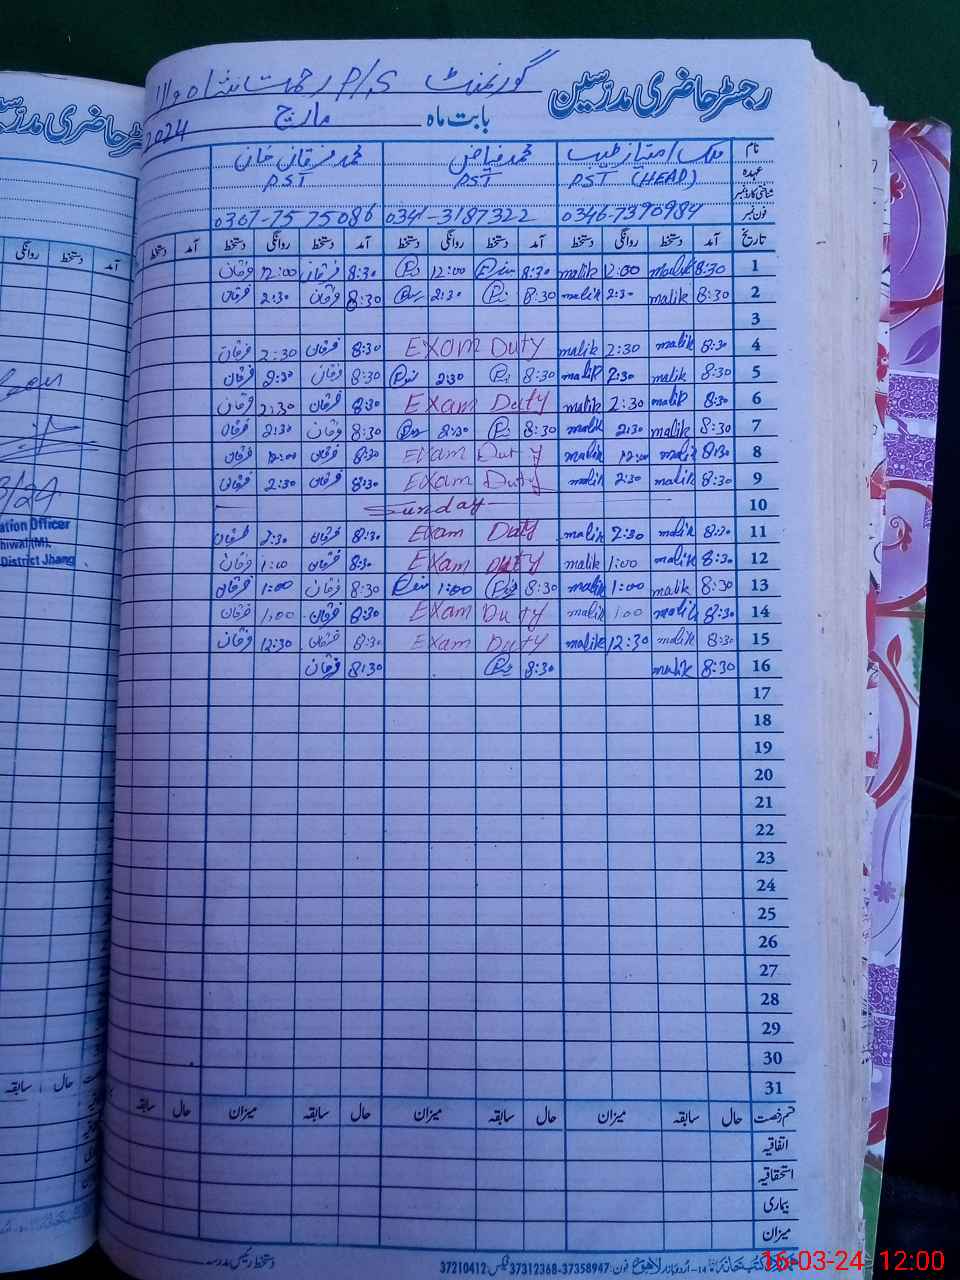 رجسٹر حاضری مدرسین گورنمنٹ P/S رحمت شاہ والا
بابت ماہ مارچ 2024
نام ملک امتیاز طیب محمد فیاض محمد فرقان خان
عہدہ PST (HEAD) PST PST
شناختی کارڈ نمبر
فون نمبر 0346-7390984 0341-3187322 0307-7575086
تاریخ آمد دستخط روانگی دستخط آمد دستخط روانگی دستخط آمد دستخط روانگی دستخط آمد دستخط
1 8:30 malik 12:00 malik 8:30 12:00 8:30 فرقان 12:00 فرقان
2 8:30 malik 2:30 malik 8:30 2:30 8:30 فرقان 2:30 فرقان
3
4 8:30 malik 2:30 malik Exam Duty 8:30 فرقان 2:30 فرقان
5 8:30 malik 2:30 malik 8:30 2:30 8:30 فرقان 2:30 فرقان
6 8:30 malik 2:30 malik Exam Duty 8:30 فرقان 2:30 فرقان
7 8:30 malik 2:30 malik 8:30 2:30 8:30 فرقان 2:30 فرقان
8 8:30 malik 12:00 malik Exam Duty 8:30 فرقان 12:00 فرقان
9 8:30 malik 2:30 malik Exam Duty 8:30 فرقان 2:30 فرقان
10 Sunday
11 8:30 malik 2:30 malik Exam Duty 8:30 فرقان 2:30 فرقان
12 8:30 malik 1:00 malik Exam Duty 8:30 فرقان 1:00 فرقان
13 8:30 malik 1:00 malik 8:30 1:00 8:30 فرقان 1:00 فرقان
14 8:30 malik 1:00 malik Exam Duty 8:30 فرقان 1:00 فرقان
15 8:30 malik 12:30 malik Exam Duty 8:30 فرقان 12:30 فرقان
16 8:30 malik 8:30 8:30 فرقان
17
18
19
20
21
22
23
24
25
26
27
28
29
30
31
قسم رخصت حال سابقہ میزان حال سابقہ میزان حال سابقہ میزان حال سابقہ
اتفاقیہ
استحقاقیہ
بیماری
میزان
دستخط رئیس مدرسہ
لاہور فون: 37358947-37312368 فیکس: 37210412
ation Officer
hiwal (M),
District Jhang
16-03-24 12:00